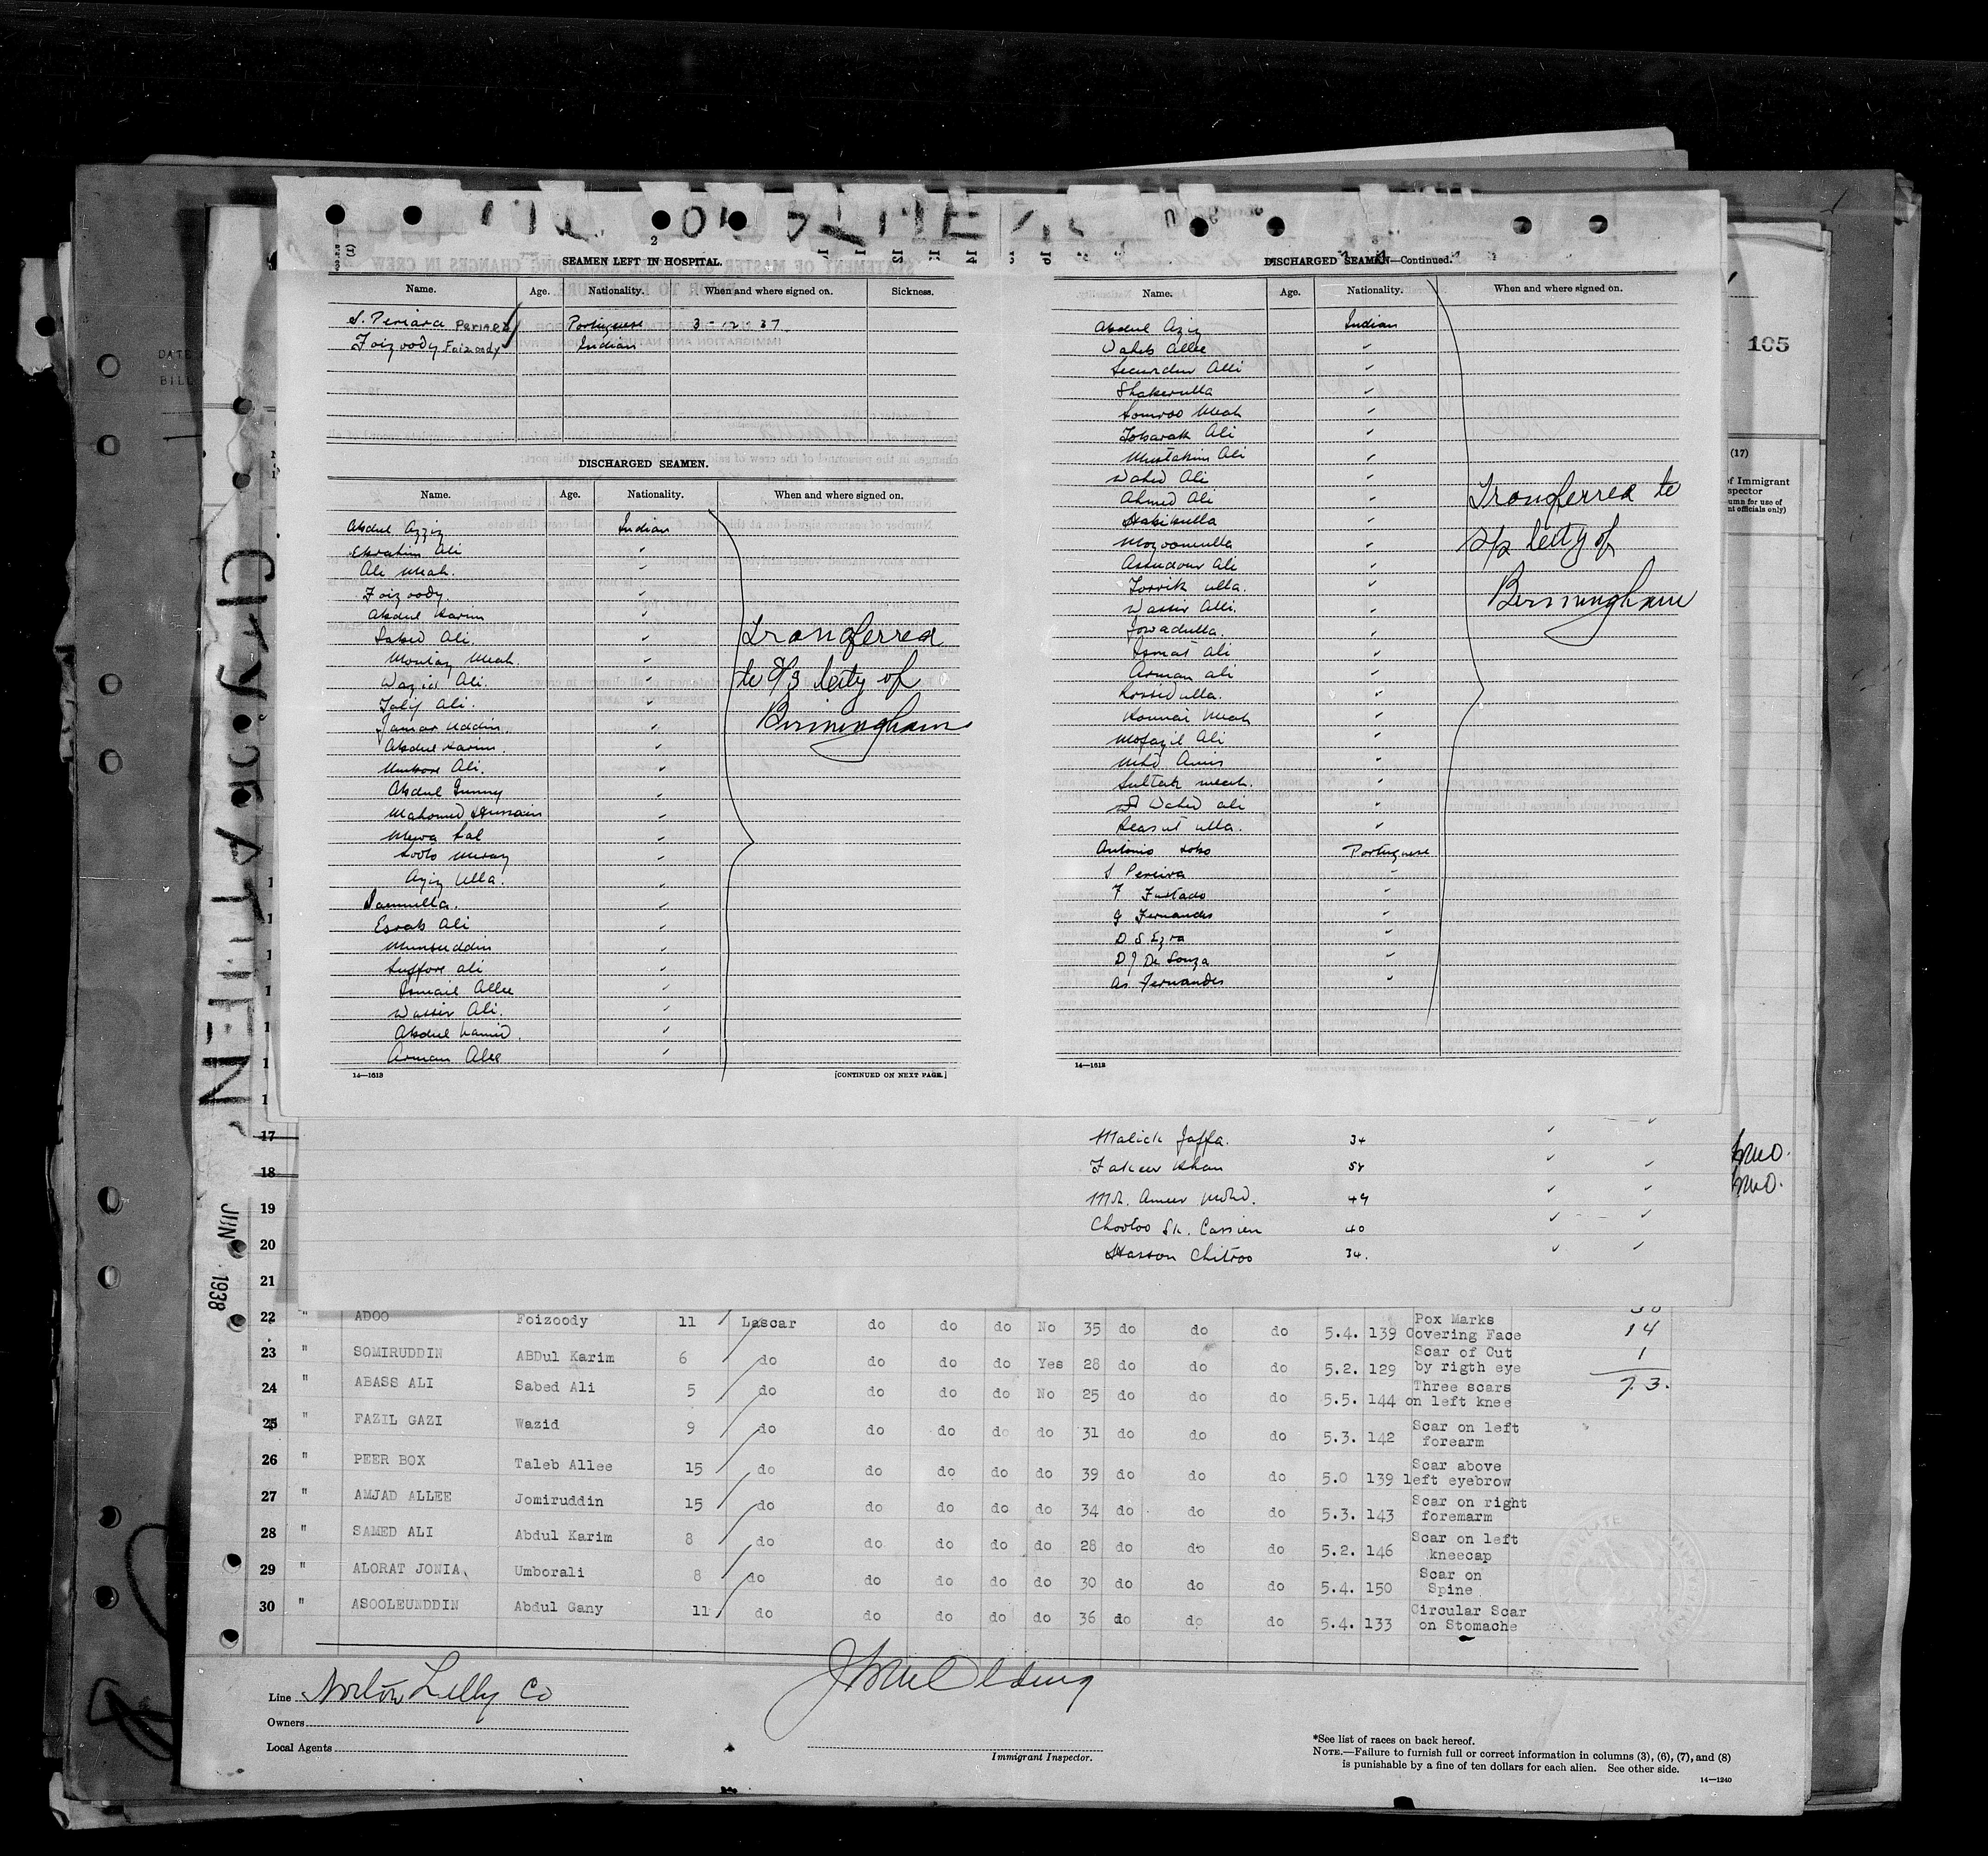 SEAMEN LEFT IN HOSPITAL.
Name. Age. Nationality. When and where signed on. Sickness.
S. Periara Portuguese 3-12-37
Foizoody Foizoody Indian
DISCHARGED SEAMEN.
Name. Age. Nationality. When and where signed on.
Abdul Azziz Indian
Ebrahim Ali ✓
Ali Meah. ✓
Foizoody. ✓
Abdul Karim ✓
Sabed Ali. ✓
Montaz Meah. ✓
Wazid Ali. ✓
Talif Ali. ✓
Jamar Uddin ✓
Abdul Karim ✓
Umbore Ali. ✓
Abdul Gunny ✓
Mahomed Hussain ✓
Mewa Lal ✓
Aziz Ulla. ✓
Samulla. ✓
Esrab Ali ✓
Munsuddin ✓
Suffore ali ✓
Ismail Allee ✓
Wassir Ali. ✓
Abdul Hamid. ✓
Arman Alee ✓
Transferred
to S/S City of
Birmingham
14—1613 [CONTINUED ON NEXT PAGE.]
DISCHARGED SEAMEN—Continued.
Name. Age. Nationality. When and where signed on.
Abdul Aziz Indian
Waheb Allee ✓
Secundur Alli ✓
Shakerulla ✓
Somroo Meah ✓
Tobarak Ali ✓
Mustakim Ali ✓
Wahid Ali ✓
Ahmed Ali ✓
Habibulla ✓
Mozoomulla ✓
Assudour Ali ✓
Torrik ulla. ✓
Wassir Alli. ✓
Jowadulla. ✓
Ismat Ali ✓
Arman ali ✓
Rossidulla. ✓
Konnai Meah ✓
Mofazil Ali ✓
Mhd Anis ✓
Sultak meah. ✓
Wahed ali ✓
Reasut ulla. ✓
Antonio Lobo Portuguese
S Pereira
F Furtado ✓
G Fernandes ✓
D S Ezra ✓
D J De Souza ✓
As Fernandes ✓
Transferred to
S/S City of
Birmingham
14—1613
105
(17)
CITY OF ATHENS
JUN 1938
Malick Jaffa. 34
Fakeer Khan 58
Md. Ameer Mohd. 49
Chootoo Sk. Cassien 40
Hasson Chitroo 34.
17
18
19
20
21
22 " ADOO Foizoody 11 Lascar do do do No 35 do do do 5.4. 139 Pox Marks Covering Face 14
23 " SOMIRUDDIN ABDul Karim 6 do do do do Yes 28 do do do 5.2. 129 Scar of Cut by rigth eye 1
24 " ABASS ALI Sabed Ali 5 do do do do No 25 do do do 5.5. 144 Three scars on left knee 73.
25 " FAZIL GAZI Wazid 9 do do do do do 31 do do do 5.3. 142 Scar on left forearm
26 " PEER BOX Taleb Allee 15 do do do do do 39 do do do 5.0 139 Scar above left eyebrow
27 " AMJAD ALLEE Jomiruddin 15 do do do do do 34 do do do 5.3. 143 Scar on right foremarm
28 " SAMED ALI Abdul Karim 8 do do do do do 28 do do do 5.2. 146 Scar on left kneecap
29 " ALORAT JONIA Umborali 8 do do do do do 30 do do do 5.4. 150 Scar on Spine
30 " ASOOLEUNDDIN Abdul Gany 11 do do do do do 36 do do do 5.4. 133 Circular Scar on Stomache
Line Norton Lilly Co
Owners
Local Agents
Immigrant Inspector.
*See list of races on back hereof.
NOTE.—Failure to furnish full or correct information in columns (3), (6), (7), and (8)
is punishable by a fine of ten dollars for each alien. See other side.
14—1240